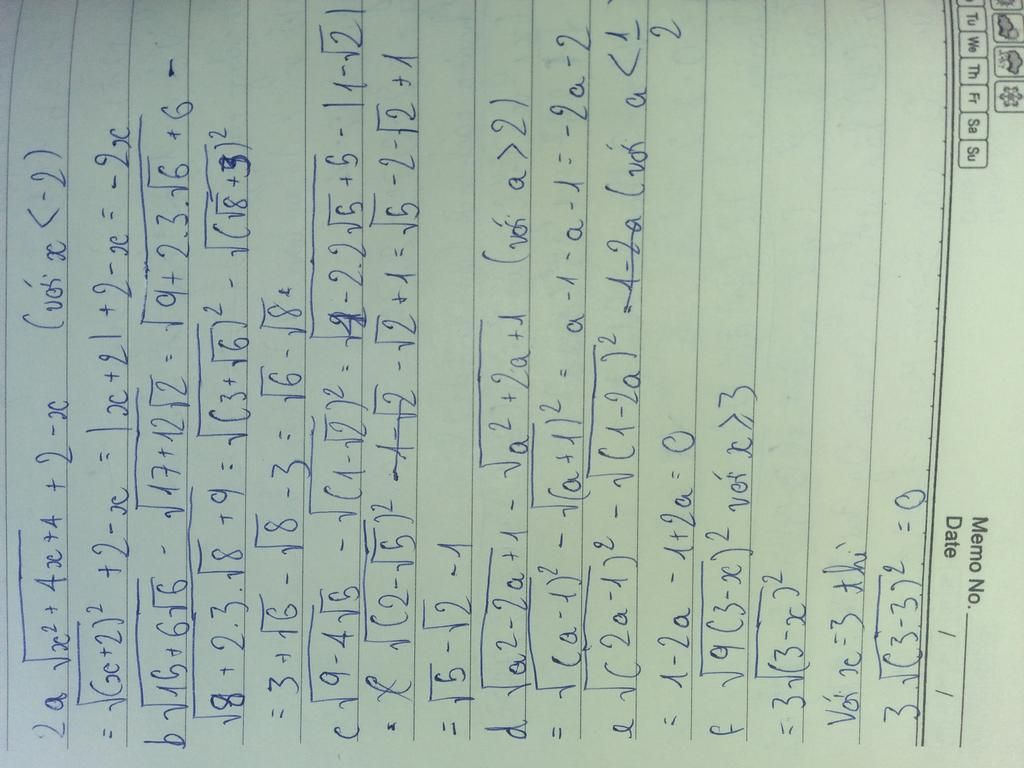 2a √(x² + 4x + 4) + 2 - x (với x < -2)
= √((x+2)²) + 2 - x = |x+2| + 2 - x = -2x
b √(15 + 6√6) - √(17 + 12√2) = √(9 + 2.3.√6 + 6) -
√(8 + 2.3.√8 + 9) = √((3+√6)²) - √((√8+3)²)
= 3 + √6 - √8 - 3 = √6 - √8
c √(9 - 4√5) - √((1-√2)²) = √(4 - 2.2√5 + 5) - |1-√2|
= √((2-√5)²) - 1-√2 - √2 + 1 = √5 - 2 - √2 + 1
= √5 - √2 - 1
d √(a² - 2a + 1) - √(a² + 2a + 1) (với a > 2)
= √((a-1)²) - √((a+1)²) = a - 1 - a - 1 = -2a - 2
e √((2a-1)²) - √((1-2a)²) = 1-2a (với a < 1/2)
= 1 - 2a - 1 + 2a = 0
f √(9(3-x)²) với x ≥ 3
= 3√((3-x)²)
Với x = 3 thì
3√((3-3)²) = 0
Memo No.
Date / /
Tu We Th Fr Sa Su